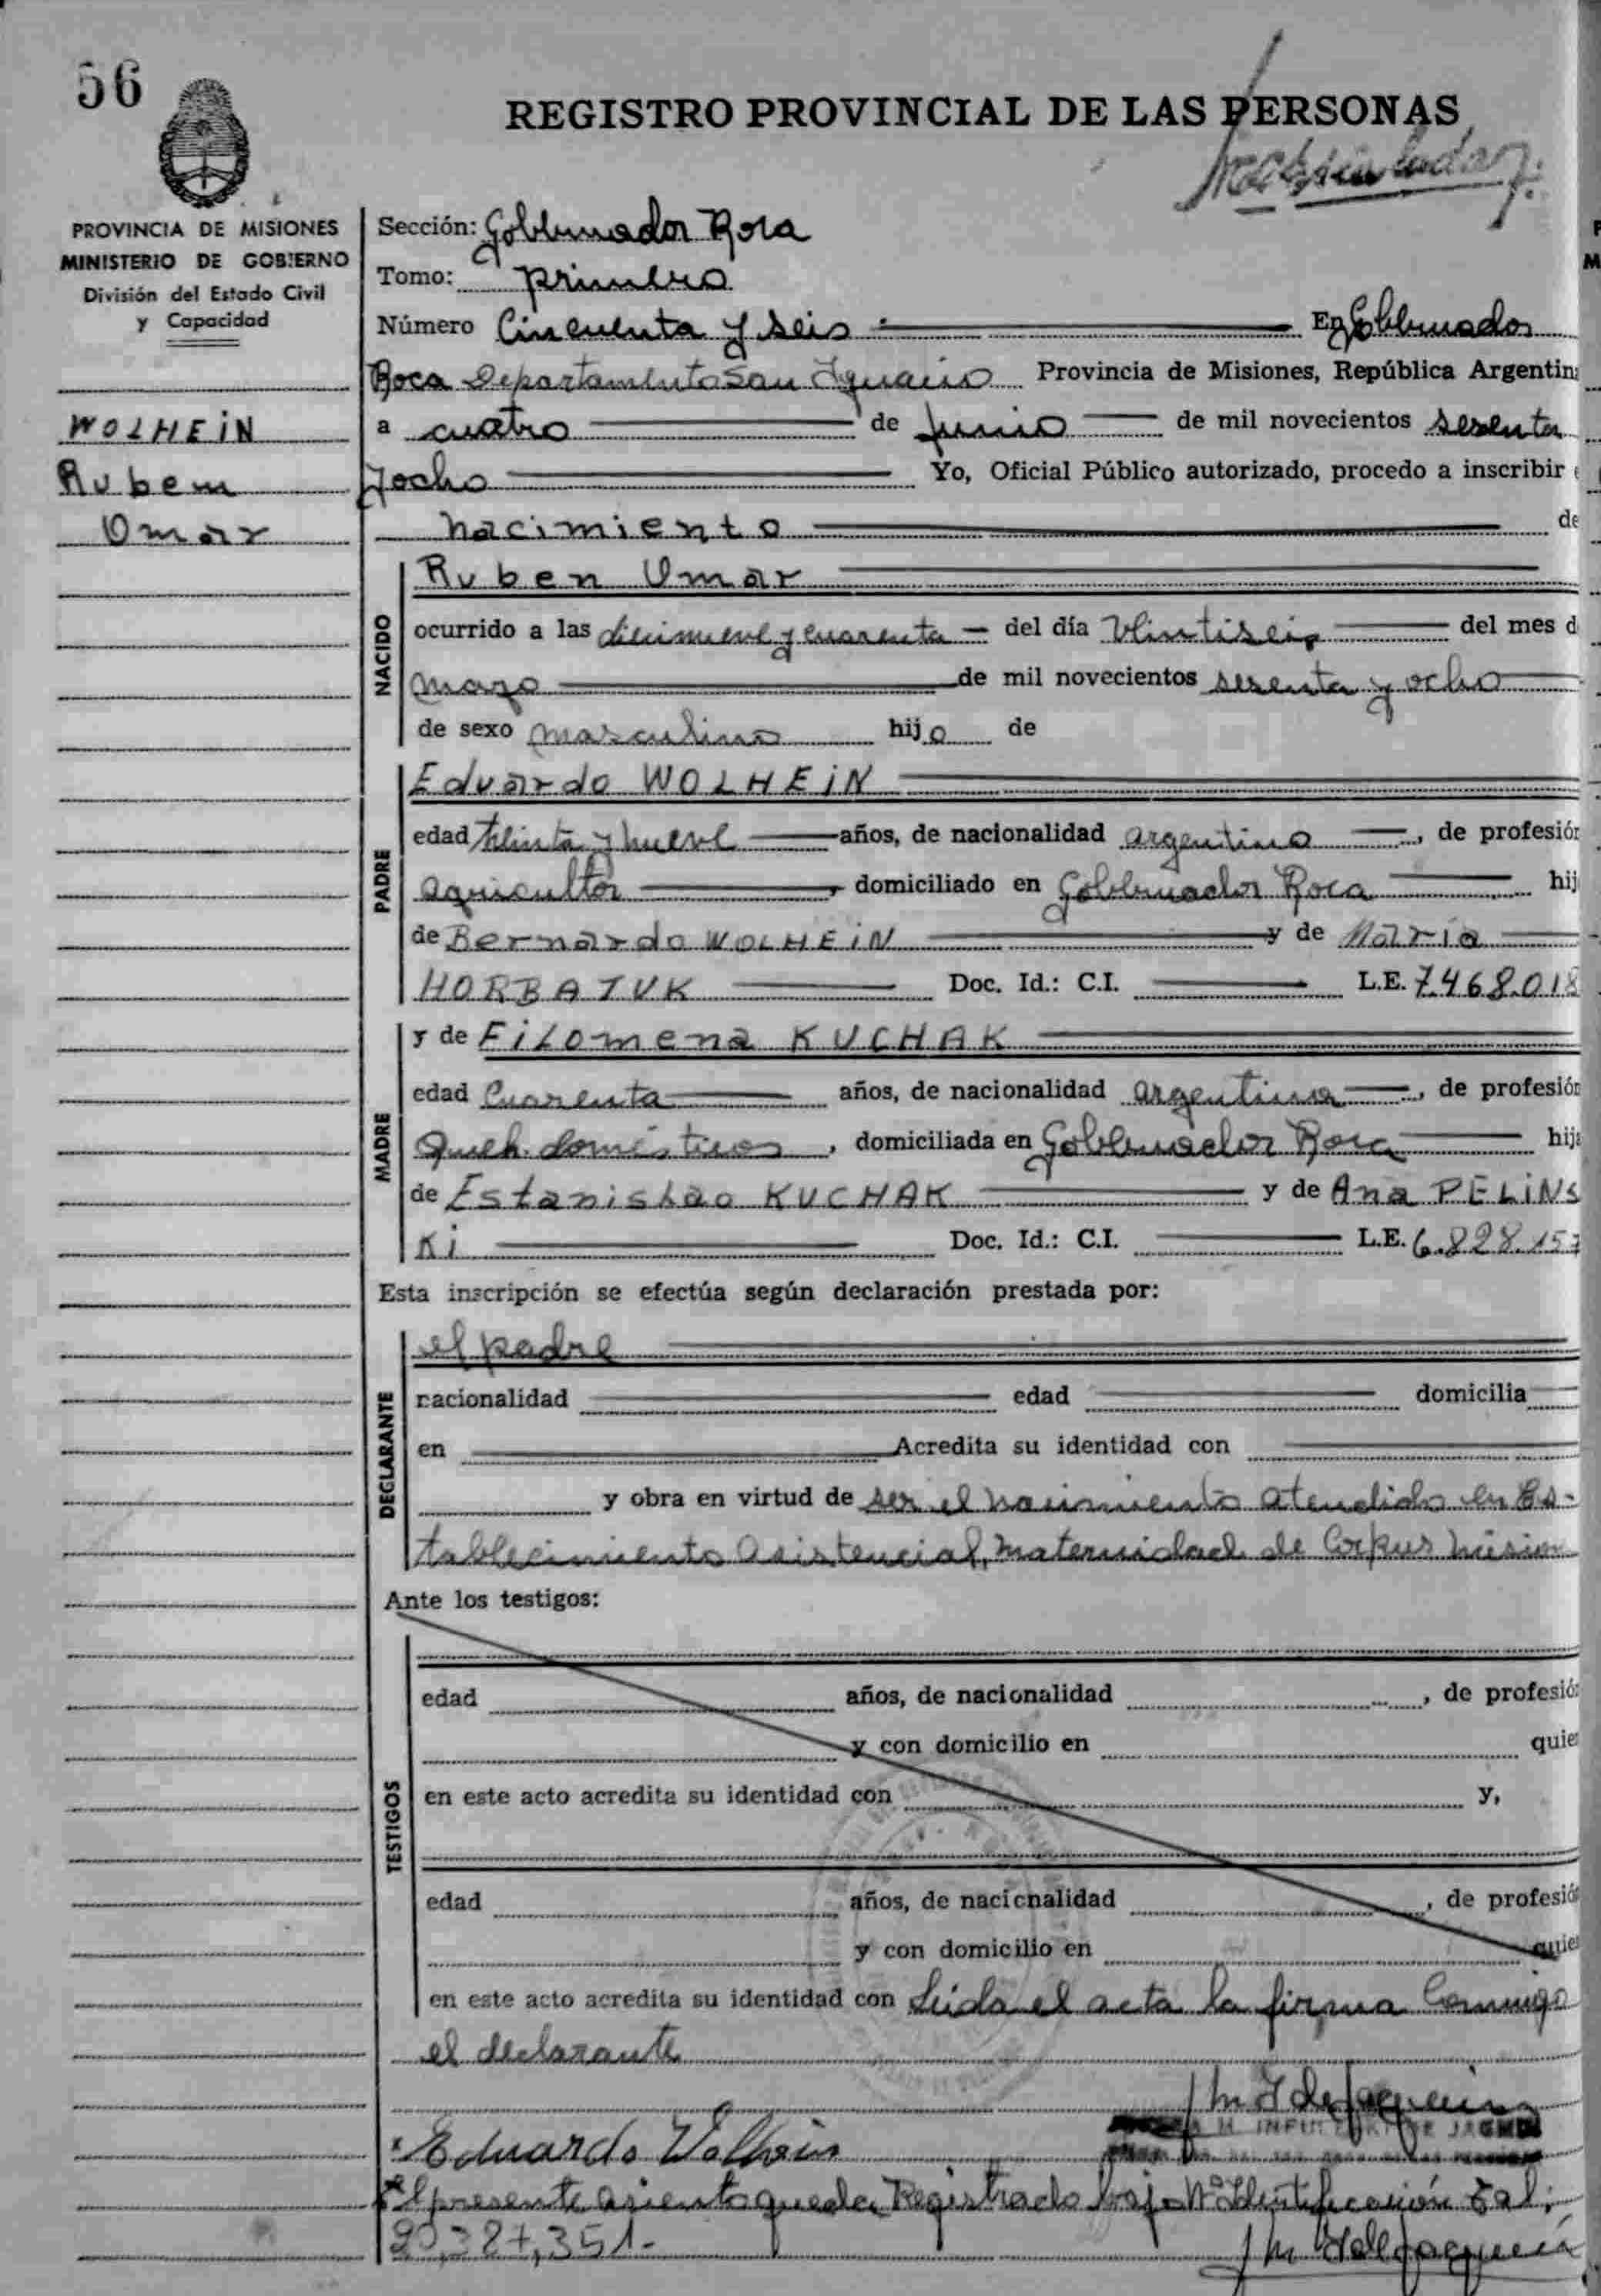 56
REGISTRO PROVINCIAL DE LAS PERSONAS
PROVINCIA DE MISIONES
MINISTERIO DE GOBIERNO
División del Estado Civil
y Capacidad
WOLHEIN
Ruben
Omar
Sección: Gobernador Roca
Tomo: primero
Número Cincuenta y seis En Gobernador
Roca Departamento San Ignacio Provincia de Misiones, República Argentin
a cuatro de junio de mil novecientos sesenta
y ocho Yo, Oficial Público autorizado, procedo a inscribir e
nacimiento de
NACIDO
Ruben Omar
ocurrido a las diecinueve y cuarenta del día veintiseis del mes d
mayo de mil novecientos sesenta y ocho
de sexo masculino hijo de
PADRE
Eduardo WOLHEIN
edad treinta y nueve años, de nacionalidad argentino, de profesión
agricultor, domiciliado en Gobernador Roca hij
de Bernardo WOLHEIN y de María
HORBATUK Doc. Id.: C.I. L.E. 7.468.018
MADRE
y de Filomena KUCHAK
edad Cuarenta años, de nacionalidad argentina, de profesión
Queh. domésticos, domiciliada en Gobernador Roca hija
de Estanislao KUCHAK y de Ana PELINS
Ki Doc. Id.: C.I. L.E. 6.828.157
Esta inscripción se efectúa según declaración prestada por:
DECLARANTE
el padre
nacionalidad edad domicilia
en Acredita su identidad con
y obra en virtud de ser el nacimiento atendido en Es-
tablecimiento Asistencial, maternidad de Corpus Mision
Ante los testigos:
TESTIGOS
edad años, de nacionalidad , de profesión
y con domicilio en quie
en este acto acredita su identidad con y,
edad años, de nacionalidad , de profesión
y con domicilio en quie
en este acto acredita su identidad con Leida el acta la firma Conmigo
el declarante
Eduardo Wolhein
El presente asiento queda Registrado bajo Nº Identificación
20,287,351.-